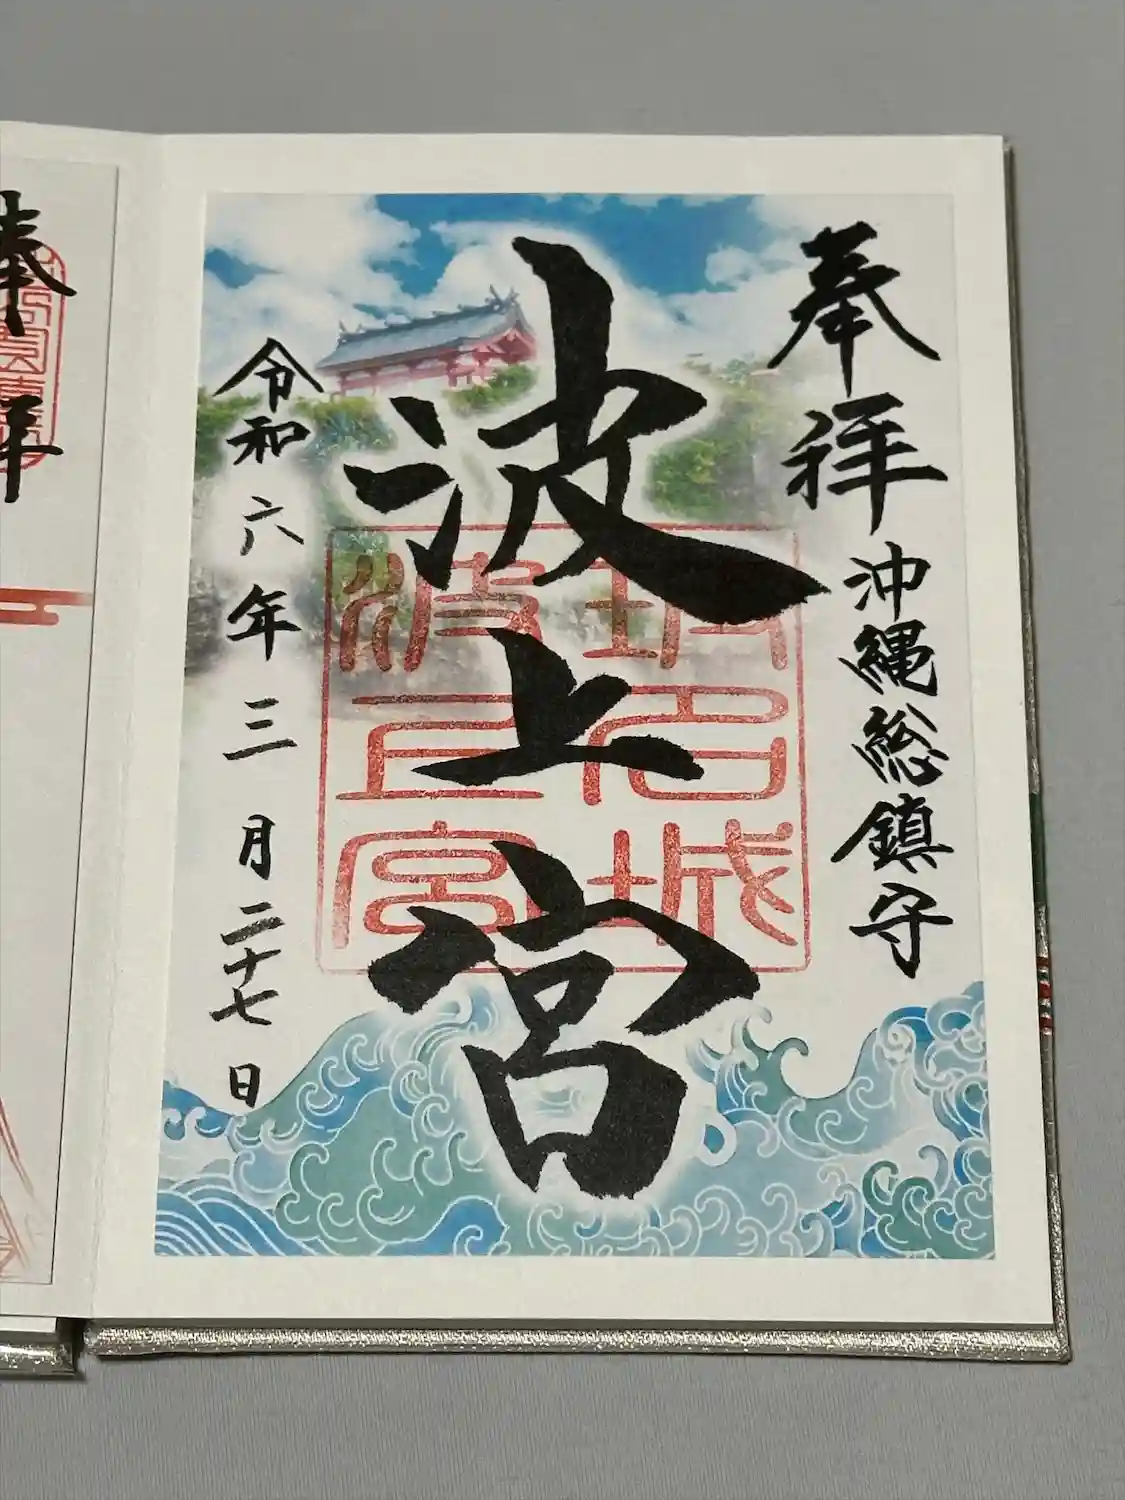 奉拝
沖縄総鎮守
波上宮
令和六年三月二十七日
波上宮
奉拝